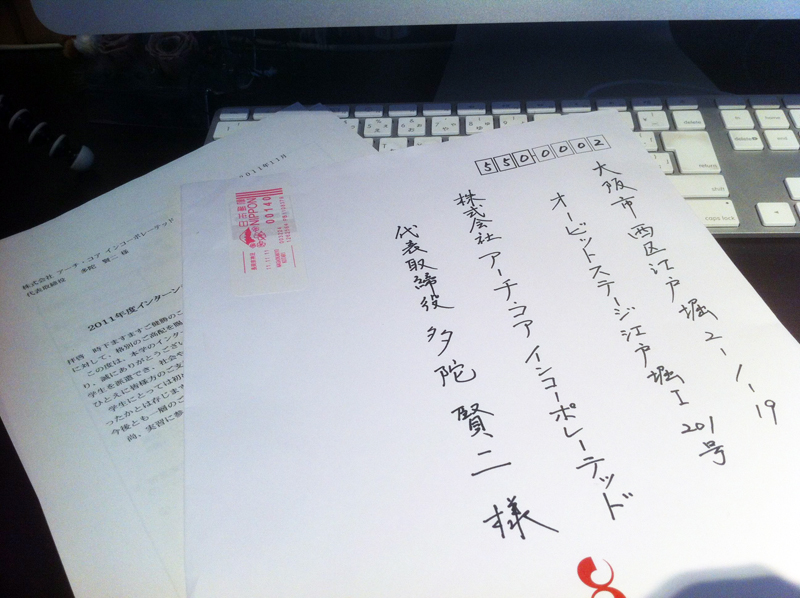 5500002
大阪市西区江戸堀2-1-19
オービットステージ江戸堀I 201号
株式会社 アーチ・コア インコーポレーテッド
代表取締役 多陀 賢二 様
日本郵便
NIPPON
00140
2011年11月
株式会社 アーチ・コア インコーポレーテッド
代表取締役 多陀 賢二 様
2011年度インターン
拝啓 時下ますますご健勝のこ
に対して、格別のご高配を賜
この度は、本学のインタ
り、誠にありがとうござい
学生を派遣でき、社会や
ひとえに皆様方のご支
学生にとっては初
ったかとは存じま
今後とも一層のご
尚、実習に参
return
shift
caps lock